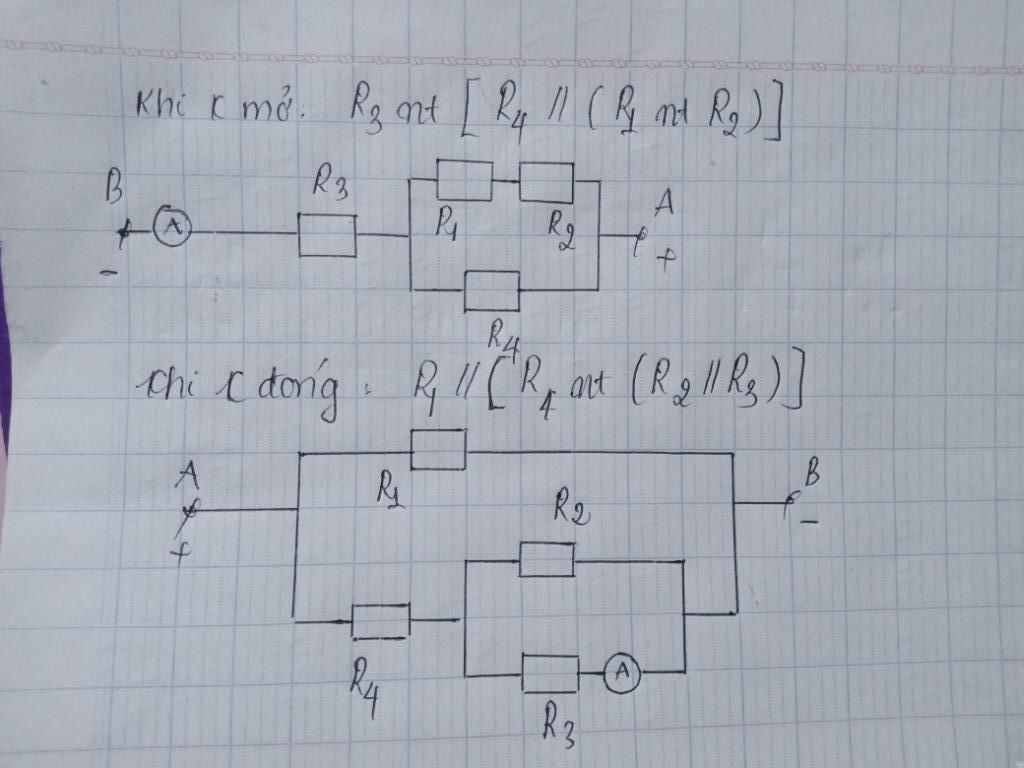 Khi K mở: R3 nt [R4 // (R1 nt R2)]
B
R3
A
R1
R2
A
-
+
R4
Khi K đóng: R1 // [R4 nt (R2 // R3)]
A
R1
B
R2
-
+
R4
A
R3